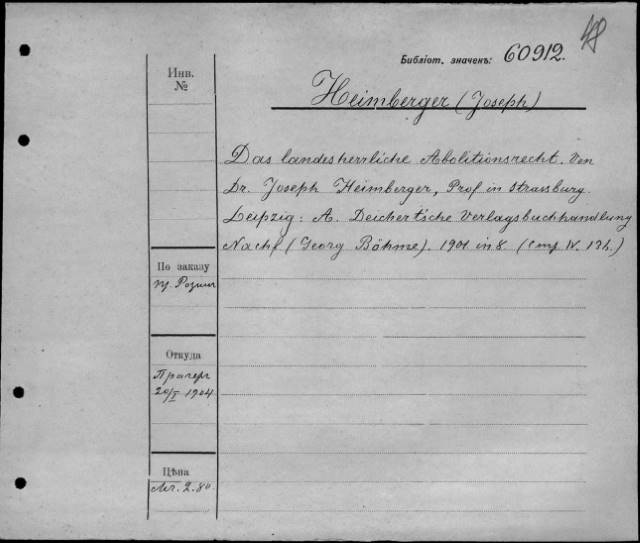 48
Библіот. значекъ: 60912.
Инв.
№
Heimberger (Joseph)
Das landesherrliche Abolitionsrecht. Von
Dr. Joseph Heimberger, Prof in Strassburg.
Leipzig: A. Deichert'sche Verlagsbuchhandlung
Nachf (Georg Böhme). 1901 in 8 (стр IV. 132.)
По заказу
пр. Розин
Откуда
Прагеръ
20/I 1904
Цѣна
Mr. 2.80